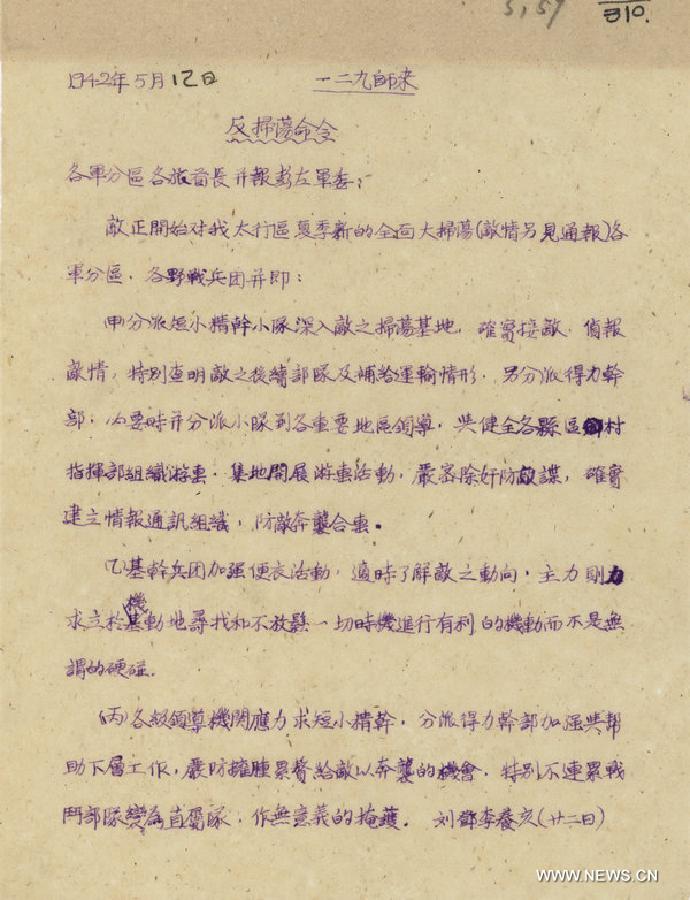 5,59
310.
1942年5月12日 一二九師来
反掃蕩命令
各軍分區各旅首長并報彭左軍委:
敵正開始对我太行區夏季新的全面大掃蕩(敵情另見通報)各
軍分區,各野戰兵团并即:
甲分派短小精幹小隊深入敵之掃蕩基地,確實接敵,偵報
敵情,特别查明敵之後續部隊及補給運輸情形,另分派得力幹
部,必要時并分派小隊到各重要地區領導,與健全各縣區村
指揮部組織游击,集地開展游击活動,嚴密除奸防敵諜,確實
建立情報通訊組織,防敵奔襲合击。
乙基幹兵团加强便衣活動,適時了解敵之動向,主力則力
求立於機動地尋找和不放鬆一切時機進行有利的機動而不是無
謂的硬碰。
(丙)各級領導機関應力求短小精幹,分派得力幹部加强與幫
助下層工作,嚴防擁腫累贅給敵以奔襲的機會,特别不連累戰
鬥部隊變為直屬隊,作無意義的掩護。 刘鄧李蔡亥(廿二日)
WWW.NEWS.CN